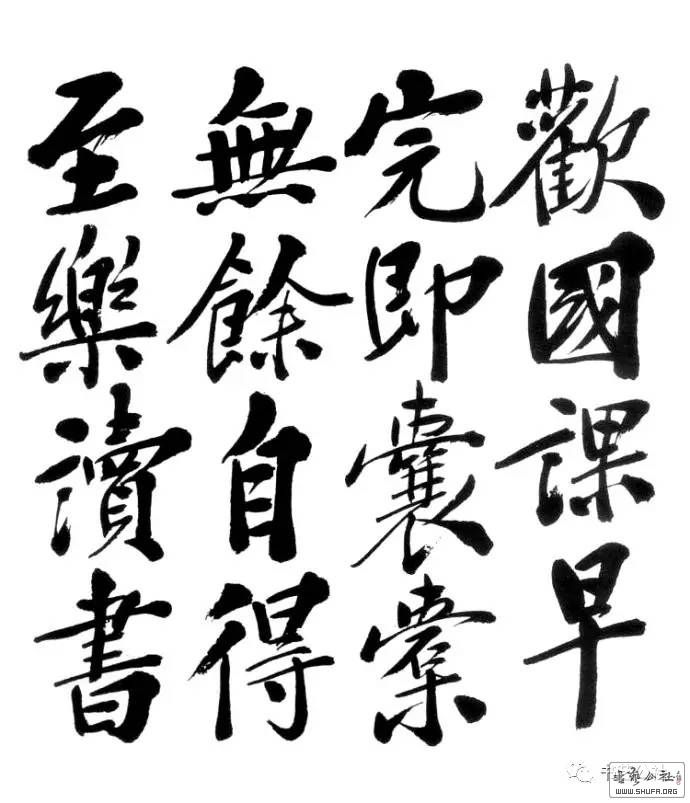 歡國課早
完即囊橐
無餘自得
至樂讀書
書藝公社
WWW.SHUFA.ORG